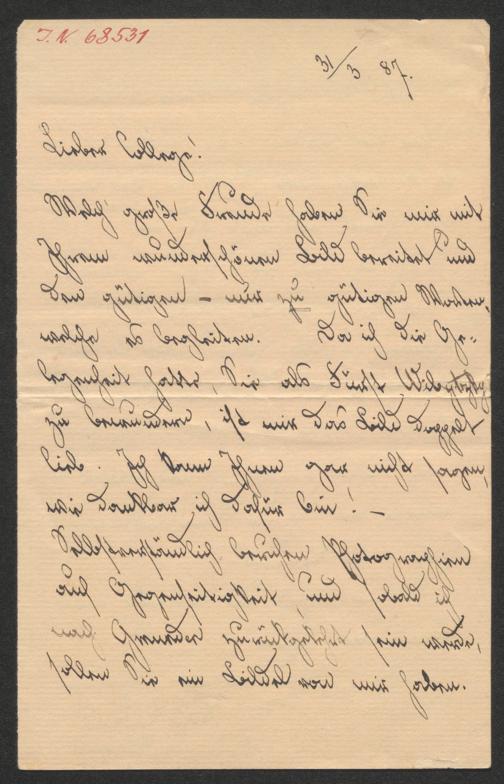 I.N. 68531
31/3 87.
Lieber College!
Welch' große Freude haben Sie mir mit
Ihrem wunderschönen Bild bereitet und
den gütigen – nur zu gütigen Worten,
welche es begleiten. Da ich die Ge-
legenheit hatte, Sie als Fürst
zu bewundern, ist mir das Bild doppelt
lieb. Ich kann Ihnen gar nicht sagen,
wie dankbar ich dafür bin! –
Selbstverständlich beruhen Photographien
auf Gegenseitigkeit und sobald ich
nach Gmunden zurückgekehrt sein werde,
sollen Sie ein Bildel von mir haben.